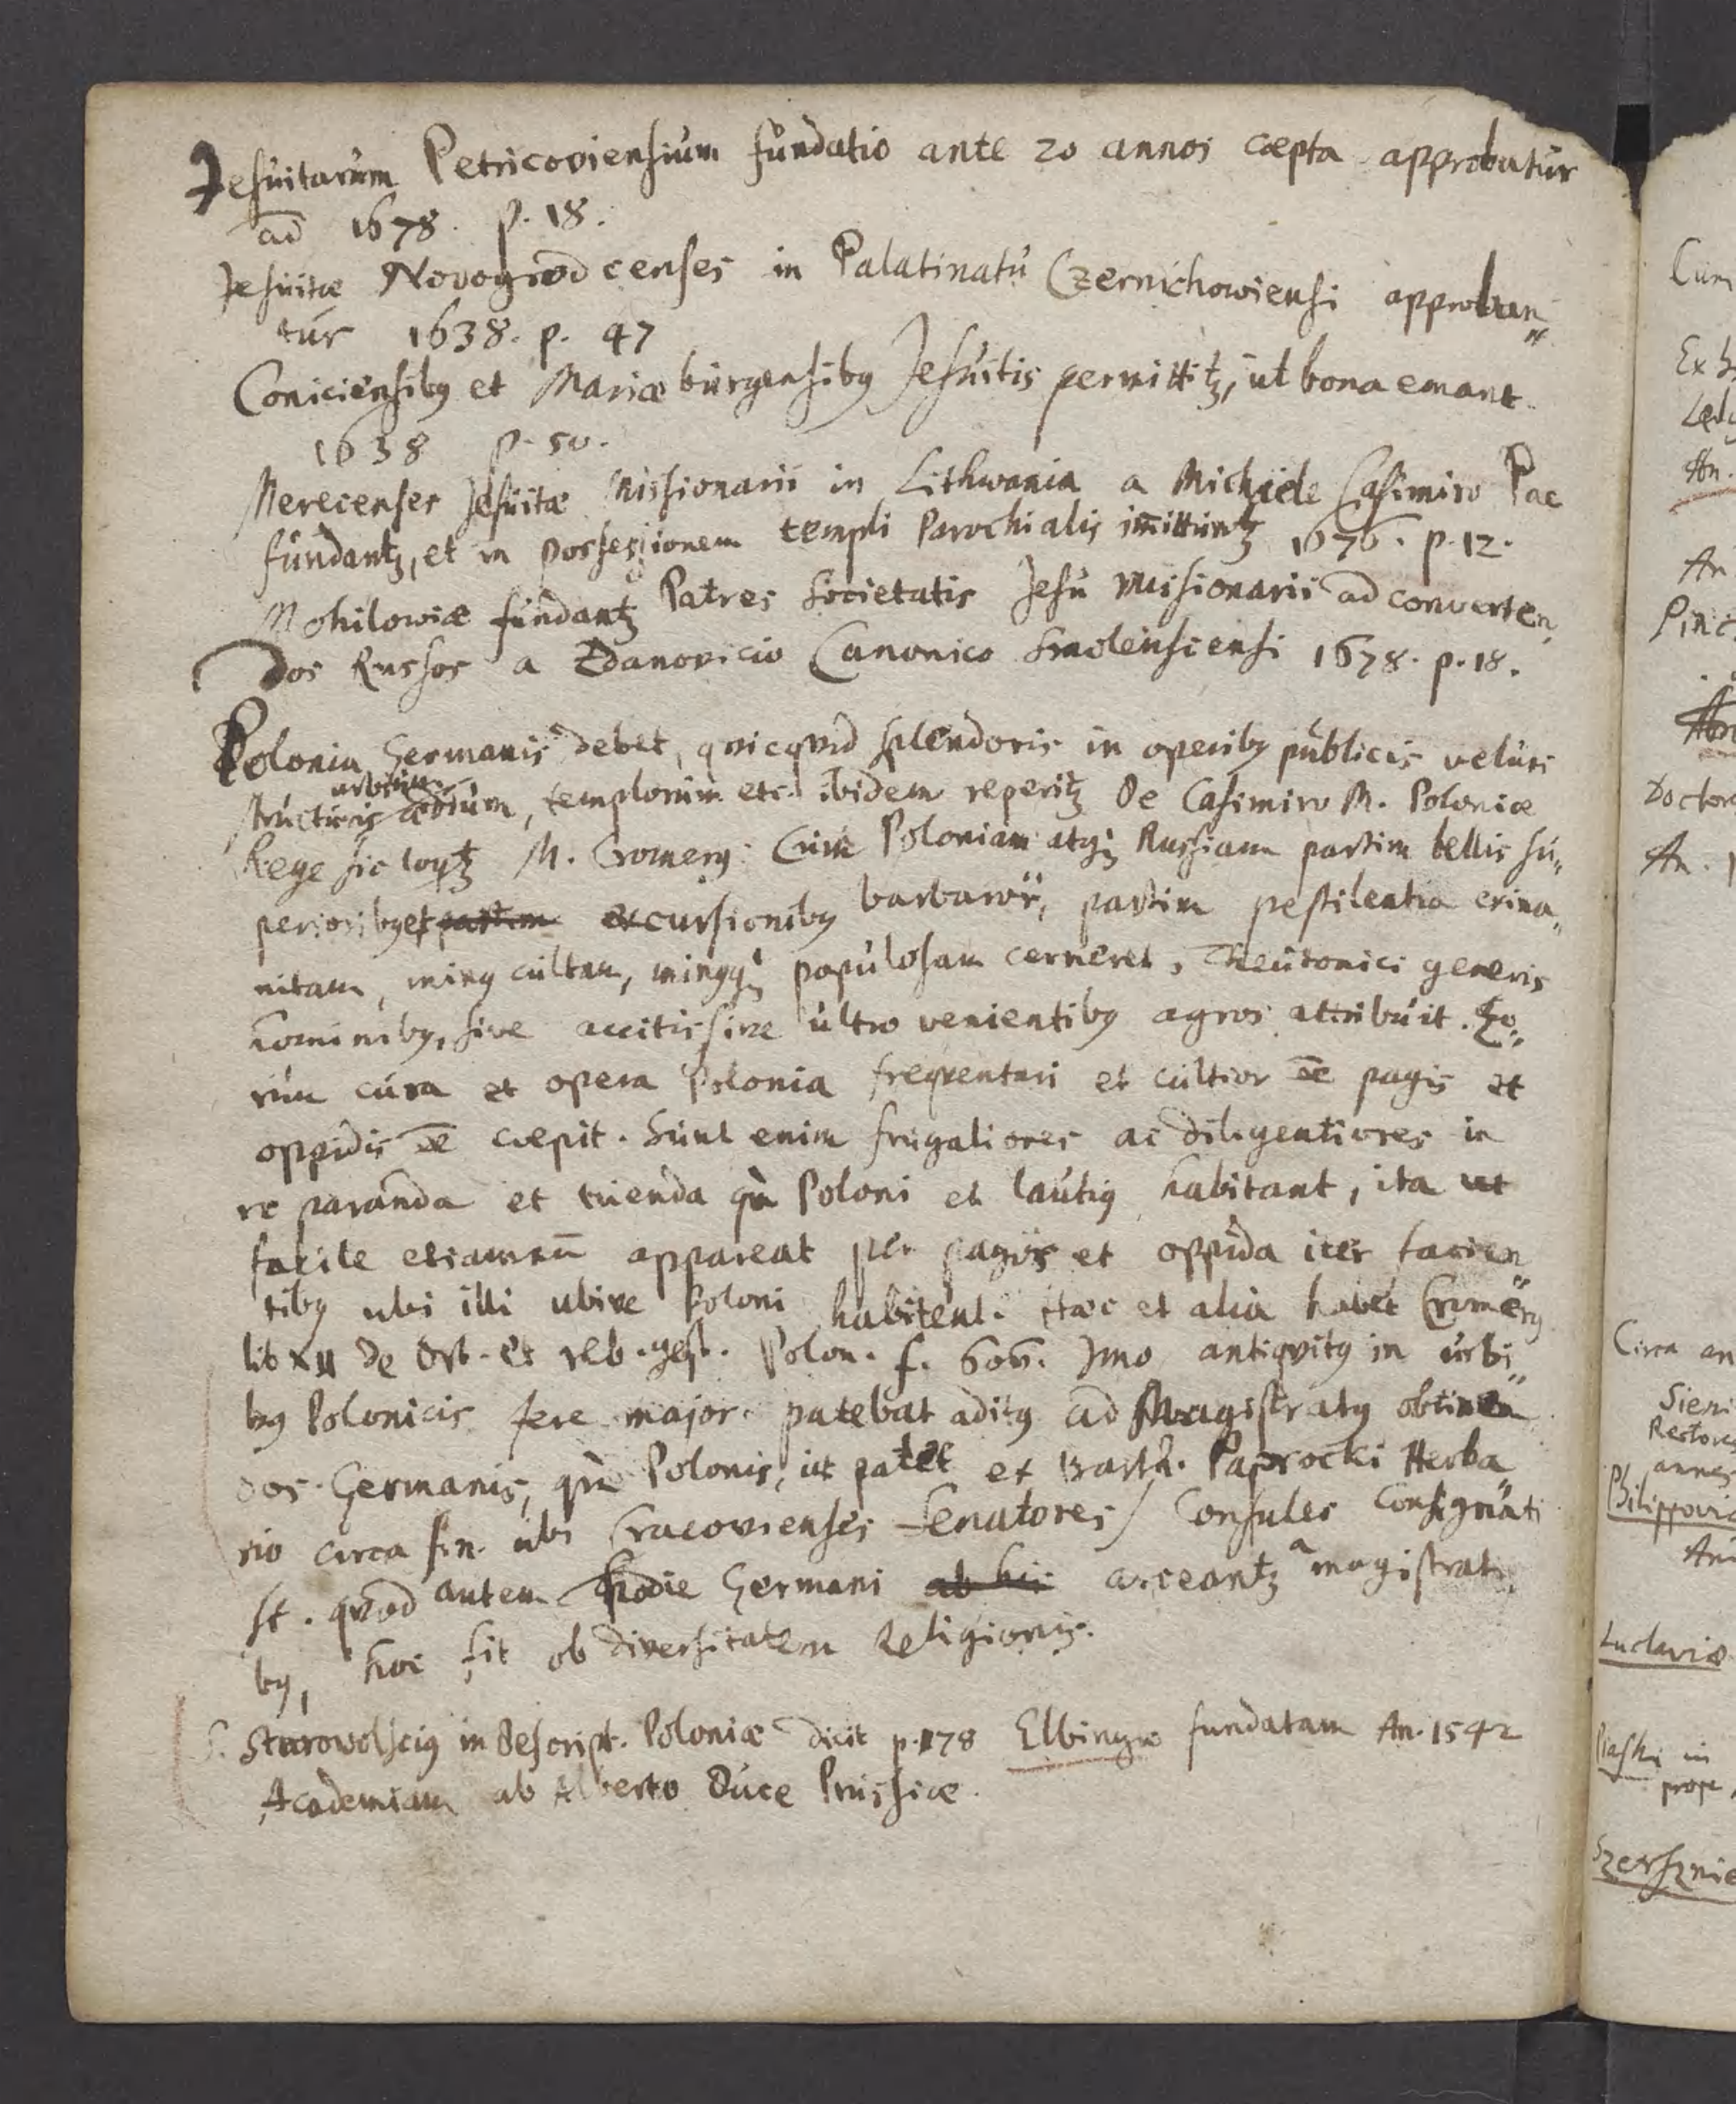 Jesuitarum Petricoviensium fundatio ante 20 annos cœpta approbatur
ad 1678. p. 18.
Jesuitæ Novogrodcenses in Palatinatu Czernichowiensi approban„
tur 1638. p. 47
Coniciensibꝯ et Mariæburgensibꝯ Jesuitis permittitꝫ, ut bona emant.
1638 p. 50.
Merecenses Jesuitæ Missionarii in Lithwania a Michaele Casimiro Pac
fundantꝫ, et in possessionem templi Parochialis im̄ittuntꝫ 1676. p. 12.
Mohilowiæ fundantꝫ Patres Societatis Jesu Missionarii ad converten„
dos Russos a Zdanovicio Canonico Smolensciensi 1678. p. 18.
Polonia Germanis debet, qvicqvid splendoris in operibꝯ publicis veluti
urbium
structuris ædium, templorum etc. ibidem reperitꝫ De Casimiro M. Poloniæ
Rege sic loqtꝫ M. Cromerꝯ: Cum Poloniam atqꝫ Russiam partim bellis su„
perioribꝯ et partim excursionibꝯ barbarorū, partim pestilentia exina„
nitam, minꝯ cultam, minꝯqꝫ populosam cerneret, Theutonici generis
hominibꝯ, sive accitis sive ultro venientibꝯ agros attribuit. Eo„
rum cura et opera Polonia freqventari et cultior ēe pagis et
oppidis ēe cœpit. Sunt enim frugaliores ac diligentiores in
re paranda et tuenda qm̀ Poloni et lautiꝯ habitant, ita ut
facile etiamnū appareat per pagos et oppida iter facien„
tibꝯ ubi illi ubive Poloni habitent. Hæc et alia habet Cromerꝯ
lib XII de Orb. et reb. gest. Polon. f. 606. Imo antiqvitꝯ in urbi„
bꝯ Polonicis fere major patebat aditꝯ ad Magistratꝯ obtinen„
dos Germanis, qm̀ Polonis, ut patet ex Barth. Paprocki Herba„
rio circa fin. ubi Cracovienses Senatores / Consules consignati
st. qvod autem hodie Germani ab his arceantꝫ a magistrati„
bꝯ, hoc fit ob diversitatem Religionis.
S. Starovolsciꝯ in Descript. Poloniæ dicit p. 178 Elbingæ fundatam An. 1542
Academiam ab Alberto Duce Prussiæ.
Cum
Ex
An.
An
Pinc
Doctor
An. 1
Circa an
Sieni
Rectore
annos
Philippovi
Luclaviæ
Piaski in
prope